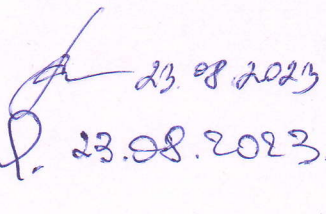 23.08.2023
23.08.2023.